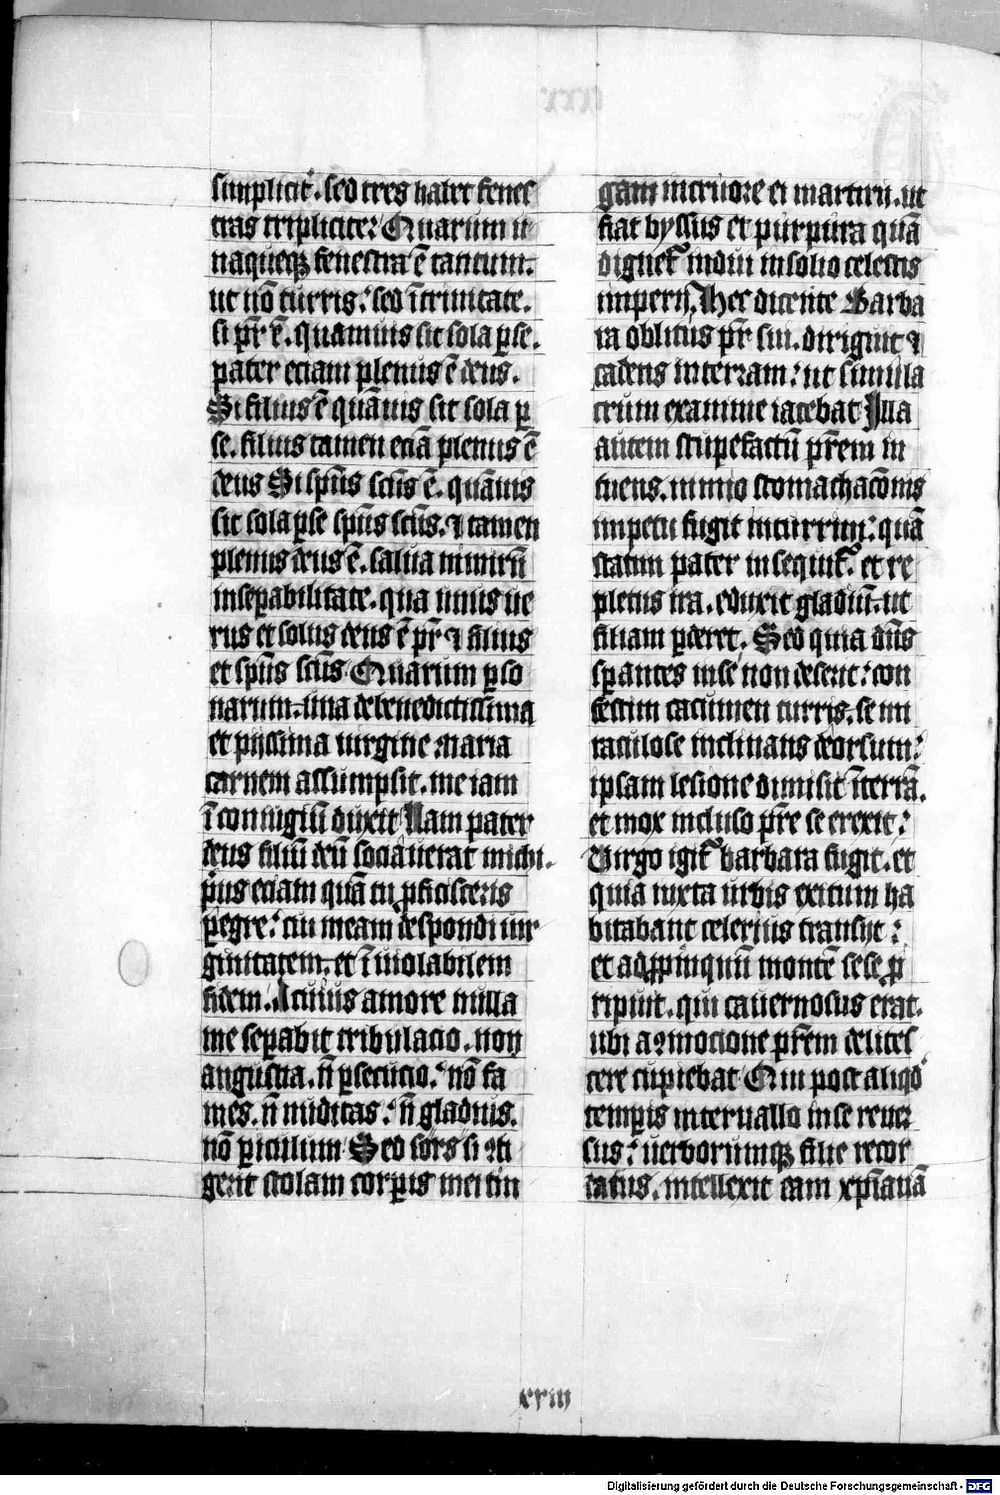 simplicit᷑. sed tres habet fenes
tras tripliciter? Quarum u
naqueqꝫ fenestra ē tantum.
ut nō turris: sed ī trinitate.
si pr̄ ē. quamuis sit sola ꝑ se.
pater eciam plenus ē deus.
Si filius ē quāuis sit sola ꝑ
se. filius tamen eciā plenus ē
deus Si sp̄us scūs ē. quāuis
sit sola ꝑ se sp̄us scūs. ⁊ tamen
plenus deus ē. salua
insepabilitate. qua unus ue
rus et solus deus ē pr̄ ⁊ filius
et sp̄us scūs Quarum ꝑso
narum. una de benedictissima
et pijssima uirgine maria
carnem assumpsit. me iam
ī coniugiū duxit Nam pater
deus filiū deū sociauerat michi.
pͥus eciam quā tu ꝓficisceris
peregre: cui meam despondi uir
ginitatem. et ī uiolabilem
fidem. A cuius amore nulla
me seꝑabit tribulacio. non
angustia. n̄ ꝑsecucio: nō fa
mes. n̄ nuditas: n̄ gladius.
nō ꝑiculum Sed sors si ꝯti
gerit stolam corꝑis mei tin
gam in cruore ei martirij. ut
fiat byssus et purpura quā
dignet᷑ indui in solio celestis
imperij. Hec dicente Barba
ra oblitus pr̄ sui. diriguit ⁊
cadens in terram: ut simula
crum exanime iacebat Illa
autem stupefactū pr̄em in
tuens. nimio stomachacōnis
impetu fugit in turrim: quā
statim pater insequit᷑. et re
pletus ira. eduxit gladiū. ut
filiam ꝑderet. Sed quia dn̄s
sꝑantes in se non deserit: con
festim cacumen turris. se mi
raculose inclinans deorsum:
ipsam lesione dimisit ī terrā.
et mox incluso pr̄e se erexit:
Virgo igit᷑ barbara fugit. et
quia iuxta urbis exitum ha
bitabant celerius transijt:
et ad ꝓpinquū montē sese ꝓ
ripuit. qui cauernosus erat.
ubi a ꝯmocione pr̄em delites
cere cupiebat Qui post aliqd
temꝑis interuallo in se reuer
sus: uerborumqꝫ filie recor
datus. intellexit eam xp̄ianā
xxiii